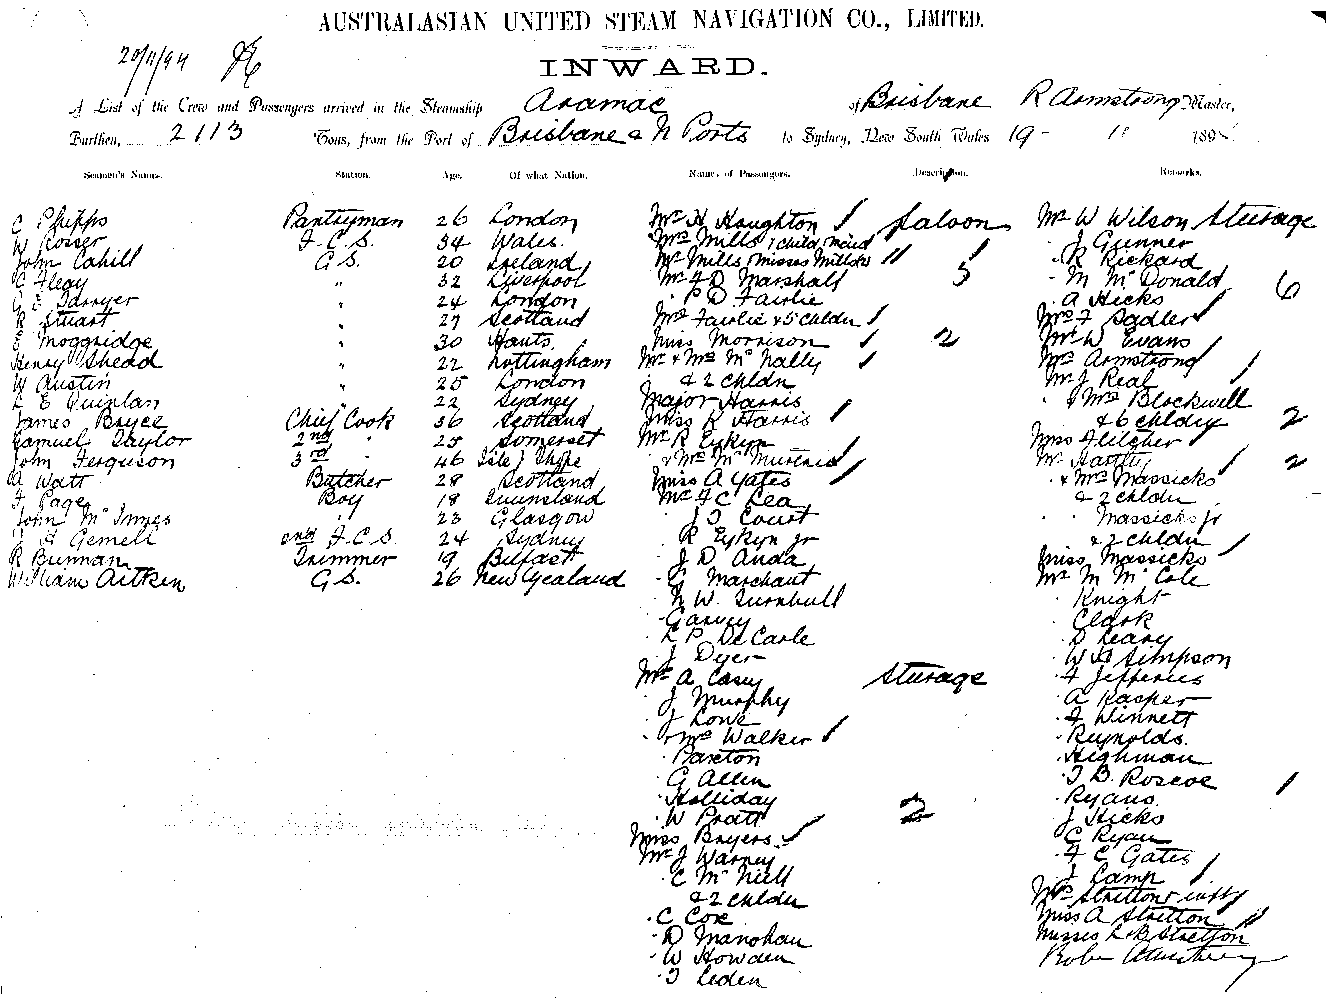 AUSTRALASIAN UNITED STEAM NAVIGATION CO., LIMITED.
20/11/94
INWARD.
A List of the Crew and Passengers arrived in the Steamship Aramac of Brisbane R Armstrong Master,
Burthen, 2113 Tons, from the Port of Brisbane & N Ports to Sydney, New South Wales 19 189
Seamen's Names. Station. Age. Of what Nation. Names of Passengers. Description. Remarks.
C Phipps Pantryman 26 London
W Rosser F.C.S. 34 Wales.
John Cahill G.S. 20 Ireland
C Fleay " 32 Liverpool
C E Farryer " 24 London
R Stuart " 27 Scotland
E Moggridge " 30 Hants
Henry Shead " 22 Nottingham
W Austin " 25 London
L E Quinlan 22 Sydney
James Bryce Chief Cook 36 Scotland
Samuel Taylor 2nd " 25 Somerset
John Ferguson 3rd " 46 Isle of Skye
A Watt Butcher 28 Scotland
F Page Boy 18 Queensland
John McInnes " 23 Glasgow
H Gemell 2nd F.C.S. 24 Sydney
R Brennan Trimmer 19 Belfast
William Aitken G.S. 26 New Zealand
Mr H Houghton / Saloon
Mrs Mills 1 child, maid
Mr Mills, Misses Mills //
Mr F D Marshall 5
" P D Fairlie
Mrs Fairlie & 5 chldn /
Miss Morrison / 2
Mr & Mrs McNally /
& 2 chldn
Major Harris
Miss K Harris /
Mr R Eykyn
& Mrs
Miss A Yates /
Mr F C Rea
" J T Court
" R Eykyn jr
" J D Anda
" G Marchant
" N W Turnbull
" Garvey
" L P De Carle
" J Dyer
Mr A Casey Steerage
" J Murphy
" J Lowe
" & Mrs Walker /
" Paxton
" G Allen
" Holliday
" W Pratt 2
Miss Bryers /
Mr J Warney
" C McNiell
& 2 chldn
" C Cox
" D Manohan
" W Howden
" T Leden
Mr W Wilson Steerage
" J Gunner
" R Rickard
" M McDonald 6
" A Hicks
Mrs F Sadler /
Mr W Evans
Mrs Armstrong /
Mr J Real
" & Mrs Blockwell
& 6 chldn 2
Miss Fletcher /
Mr Hartly / 2
" & Mrs Massicks
& 2 chldn
" Massicks jr
& 2 chldn
Miss Massicks /
Mr M McCole
" Knight
" Clark
" D Leary
" W H Simpson
" F Jefferies
" A Kasper
" F Winnett
" Reynolds.
" Highman
" T B Roscoe /
" Ryans.
" J Hicks
" C Ryan
" F C Gates
" J Camp /
Mrs Stretton & inft /
Miss A Stretton //
Misses L & B Stretton